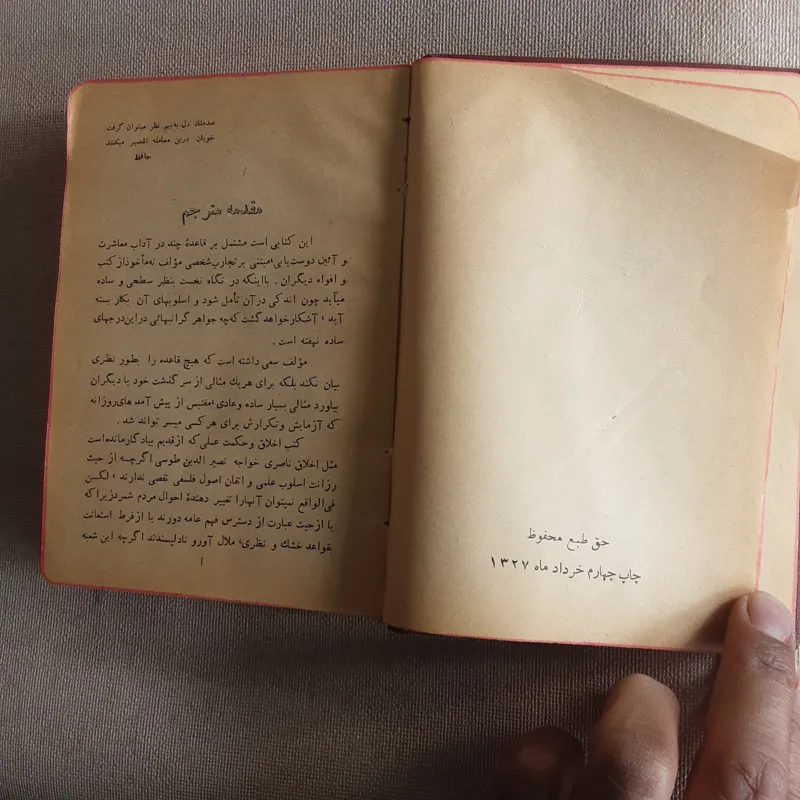 حق طبع محفوظ
چاپ چهارم خرداد ماه ۱۳۲۷
صدملك دل به‌نیم نظر میتوان گرفت
خوبان درین معامله تقصیر میکنند
حافظ
مقدمه مترجم
این کتابی است مشتمل بر قاعدهٔ چند در آداب معاشرت
و آئین دوست‌یابی،مبتنی بر تجارب‌شخصی مؤلف نه‌مأخوذازکتب
و افواه دیگران . بااینکه در نگاه نخست بنظر سطحی و ساده
میآید چون اندکی درآن تأمل شود و اسلوبهای آن بکار بسته
آید ، آشکارخواهدگشت که‌چه جواهر گرانبهائی دراین‌درجهای
ساده نهفته است .
مؤلف سعی داشته است که هیچ قاعده را بطور نظری
بیان نکند بلکه برای هریك مثالی از سرگذشت خود یا دیگران
بیاورد مثالی بسیار ساده وعادی،مقتبس از پیش آمدهای‌روزانه
که آزمایش وتکرارش برای هرکسی میسر تواند شد .
کتب اخلاق وحکمت عملی‌که ازقدیم بیادگارمانده‌است
مثل اخلاق ناصری خواجه نصیر الدین طوسی اگرچه از حیث
رزانت اسلوب علمی و اتقان اصول فلسفی نقصی ندارند ، لکن
فی‌الواقع نمیتوان آنهارا تغییر دهندهٔ احوال مردم شمردزیراکه
یا ازحیث عبارت از دسترس فهم عامه دورند یا ازفرط استعانت
بقواعد خشك و نظری، ملال آورو نادلپسندند اگرچه این شعبه
۱